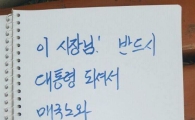 이 시장님! 반드시
대통령 되셔서
매국노와